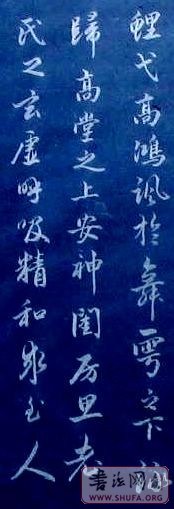 鯉弋高鴻諷於舞雩之下詠
歸高堂之上安神閨房思老
氏之玄虛呼吸精和求至人
書法网
WWW.SHUFA.ORG